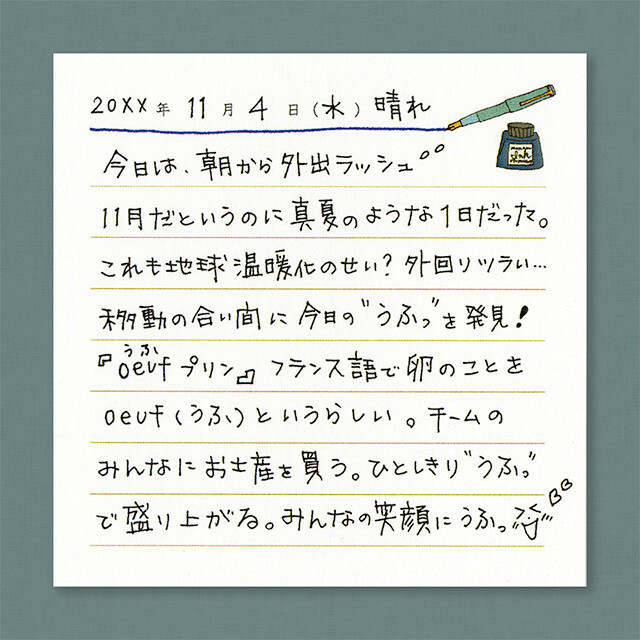 20XX年 11月 4日(水) 晴れ
今日は、朝から外出ラッシュ。。
11月だというのに真夏のような1日だった。
これも地球温暖化のせい?外回リツラい…
移動の合い間に今日の"うふっ"を発見!
うふ
『oeufプリン』フランス語で卵のことを
oeuf(うふ)というらしい。チームの
みんなにお土産を買う。ひとしきり"うふっ"
で盛り上がる。みんなの笑顔にうふっ
Ink